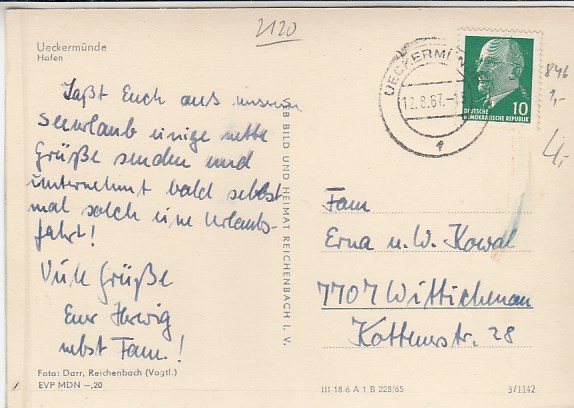 2120
Ueckermünde
Hafen
Laßt Euch aus unserem
Seeurlaub einige nette
Grüße senden und
unternehmt bald selbst
mal solch eine Urlaubs-
fahrt!
Viele Grüße
Euer Herwig
nebst Fam.!
Foto: Darr, Reichenbach (Vogtl.)
EVP MDN –,20
VEB BILD UND HEIMAT REICHENBACH I. V.
UECKERMÜ
12.8.67.-1
DEUTSCHE
DEMOKRATISCHE REPUBLIK
10
846
1,-
4,-
Fam
Erna u. W. Kowal
7707 Wittichenau
Kottenerstr. 28
III 18 6 A 1 B 228/65
3/1142